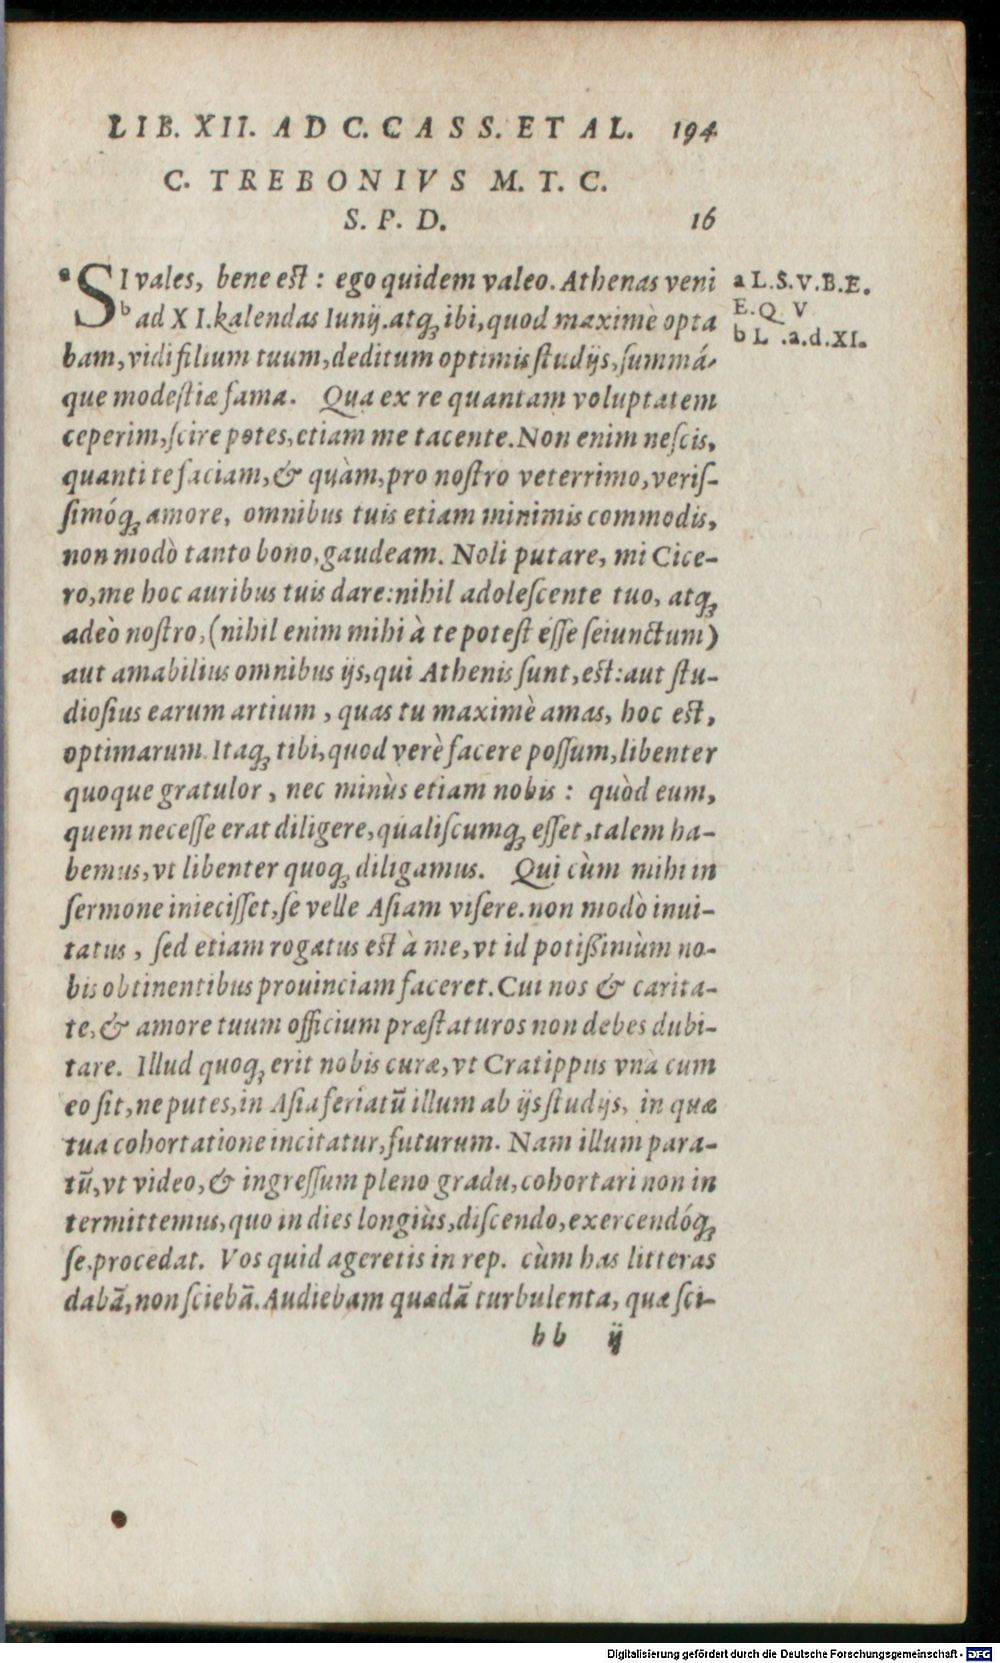 LIB. XII. AD C. CASS. ET AL. 194
C. TREBONIVS M. T. C.
S. P. D. 16
ᵃ SI vales, bene eſt : ego quidem valeo. Athenas veni
ᵇ ad XI. kalendas Iunij. atqꝫ ibi, quod maximè opta
bam, vidi filium tuum, deditum optimis ſtudijs, ſummá-
que modeſtiæ fama. Qua ex re quantam voluptatem
ceperim, ſcire potes, etiam me tacente. Non enim neſcis,
quanti te faciam, & quàm, pro noſtro veterrimo, veriſ-
ſimóqꝫ amore, omnibus tuis etiam minimis commodis,
non modò tanto bono, gaudeam. Noli putare, mi Cice-
ro, me hoc auribus tuis dare: nihil adoleſcente tuo, atqꝫ
adeò noſtro, (nihil enim mihi à te poteſt eſſe ſeiunctum)
aut amabilius omnibus ijs, qui Athenis ſunt, eſt: aut ſtu-
dioſius earum artium, quas tu maximè amas, hoc eſt,
optimarum. Itaqꝫ tibi, quod verè facere poſſum, libenter
quoque gratulor, nec minùs etiam nobis : quòd eum,
quem neceſſe erat diligere, qualiſcumqꝫ eſſet, talem ha-
bemus, vt libenter quoqꝫ diligamus. Qui cùm mihi in
ſermone inieciſſet, ſe velle Aſiam viſere. non modò inui-
tatus, ſed etiam rogatus eſt à me, vt id potißimùm no-
bis obtinentibus prouinciam faceret. Cui nos & carita-
te, & amore tuum officium præſtaturos non debes dubi-
tare. Illud quoqꝫ erit nobis curæ, vt Cratippus vnà cum
eo ſit, ne putes, in Aſia feriatū illum ab ijs ſtudijs, in quæ
tua cohortatione incitatur, futurum. Nam illum para-
tū, vt video, & ingreſſum pleno gradu, cohortari non in
termittemus, quo in dies longiùs, diſcendo, exercendóqꝫ
ſe, procedat. Vos quid ageretis in rep. cùm has litteras
dabā, non ſciebā. Audiebam quædā turbulenta, quæ ſci-
bb ij
a L.S.V.B.E.
E.Q V
b L .a.d.XI.
Digitalisierung gefördert durch die Deutsche Forschungsgemeinschaft - DFG